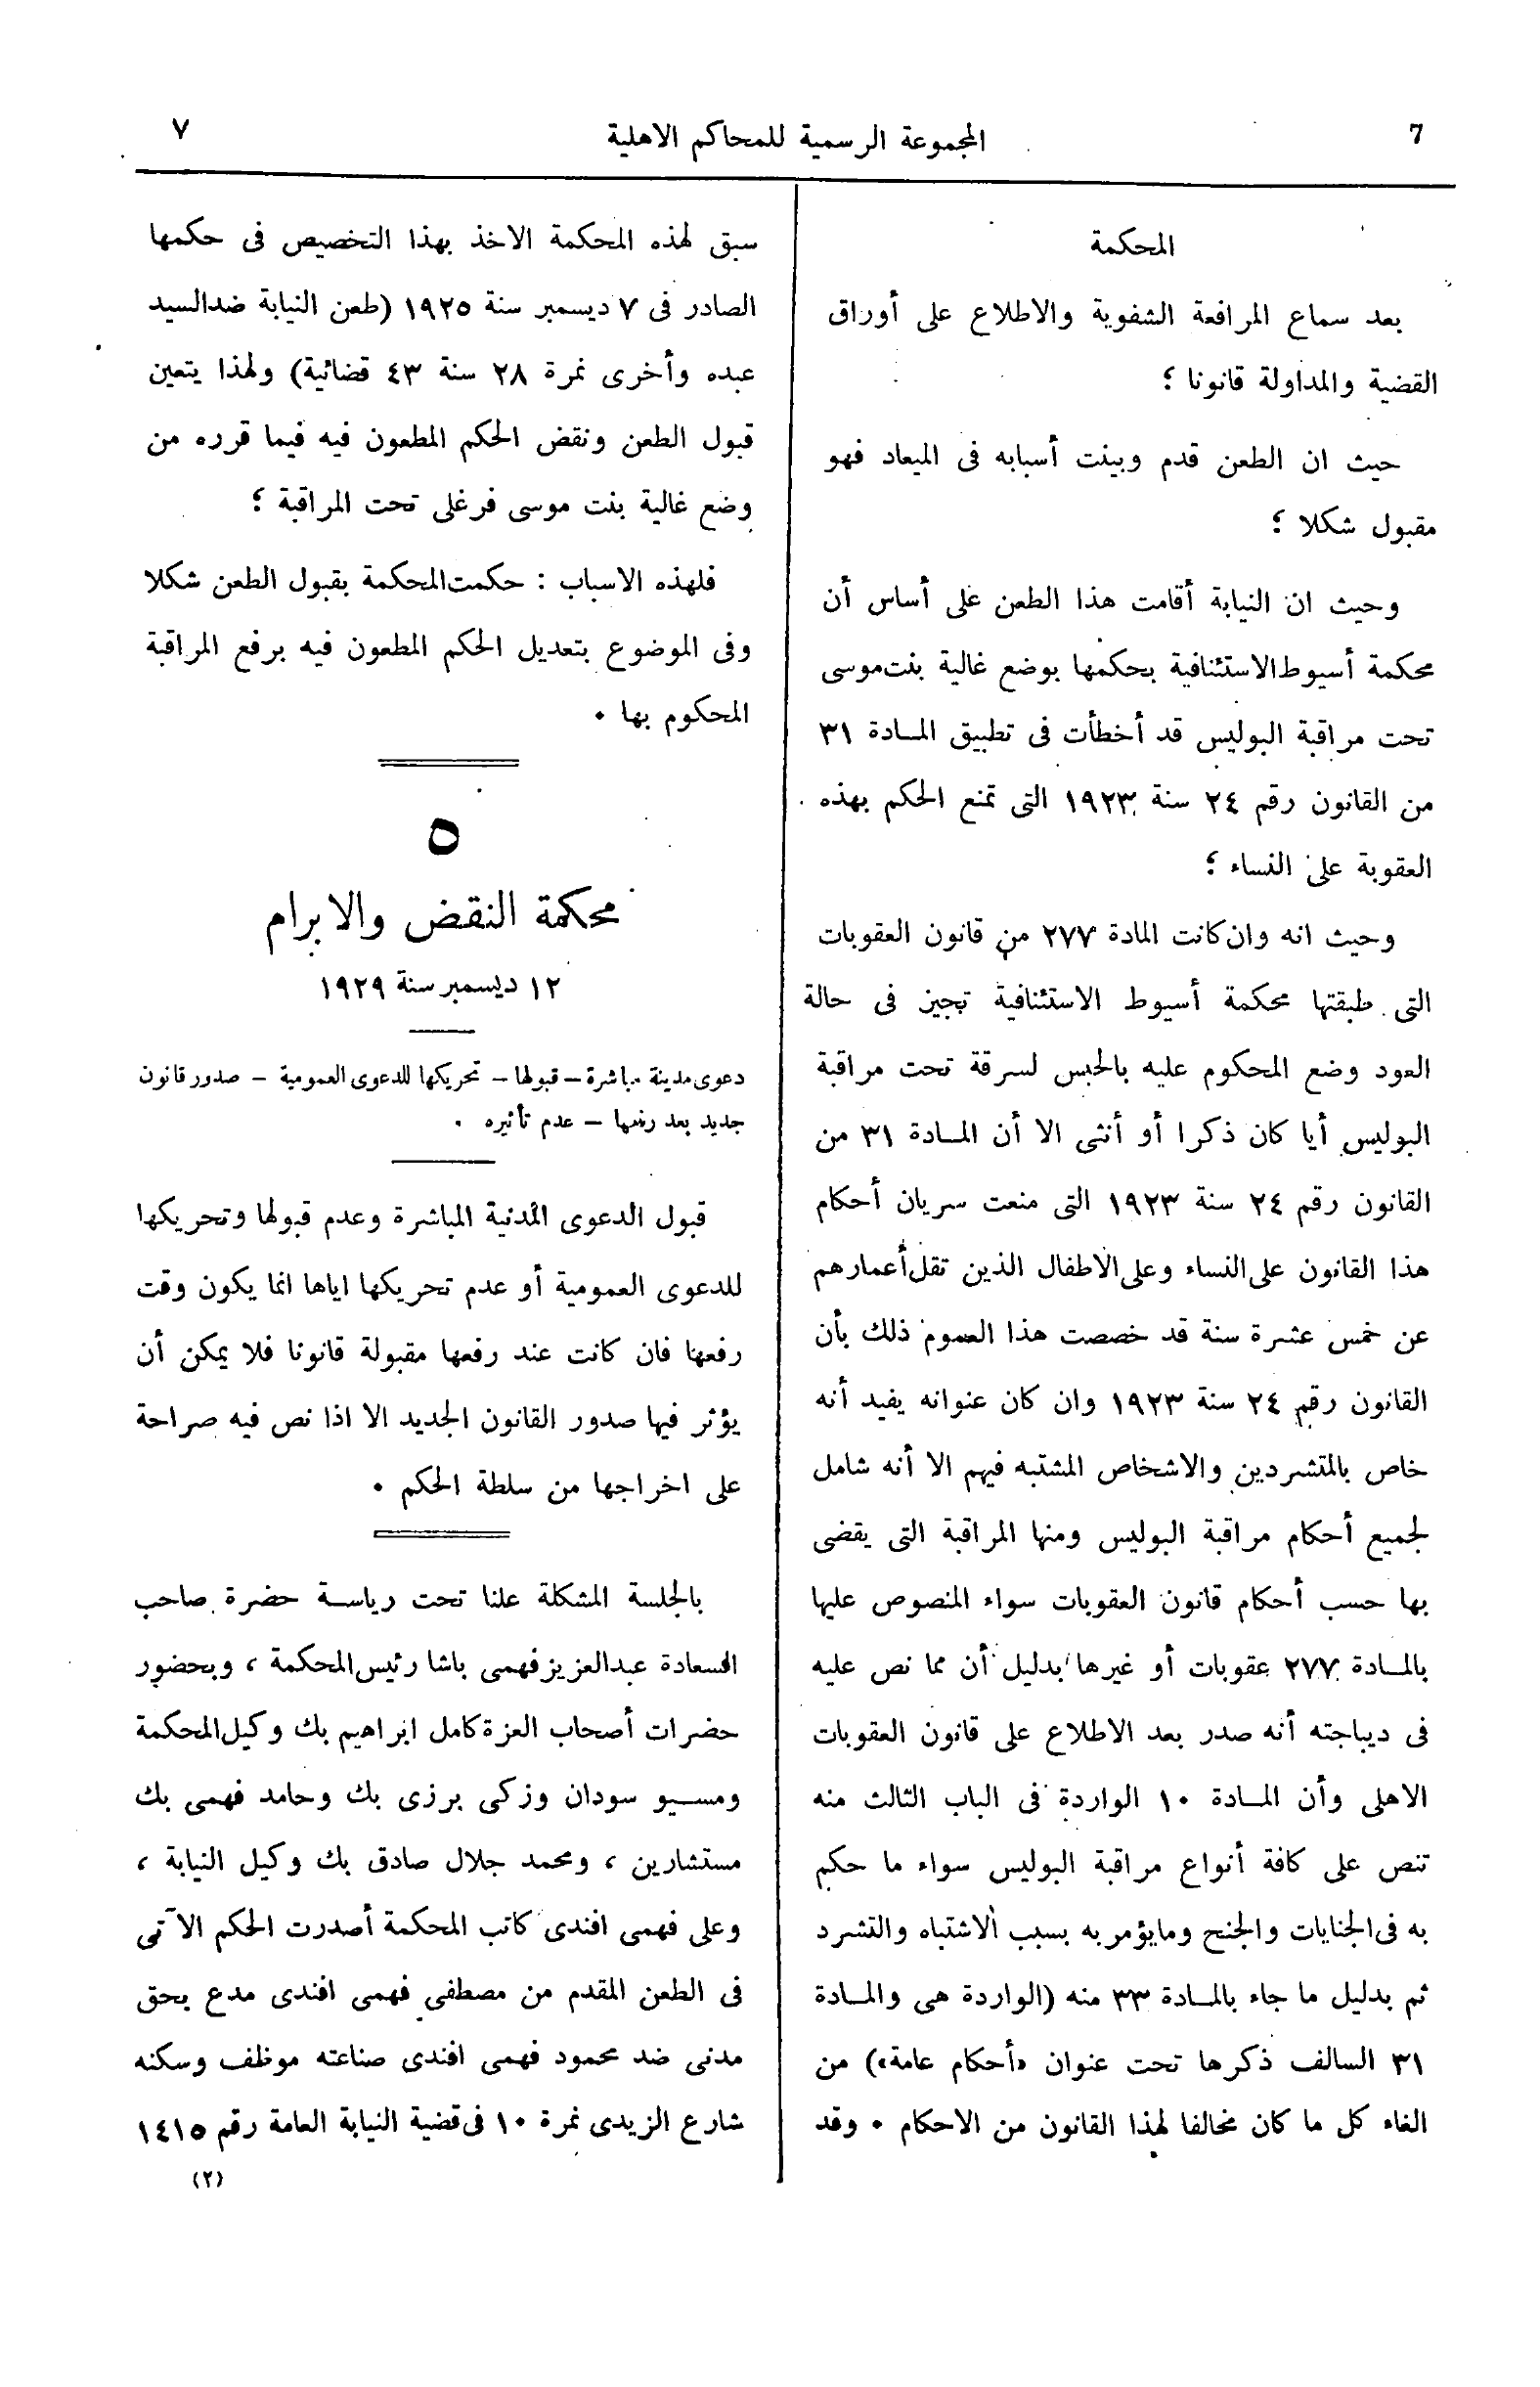 7
المجموعة الرسمية للمحاكم الاهلية
٧
المحكمة
بعد سماع المرافعة الشفوية والاطلاع على أوراق
القضية والمداولة قانونا ؛
حيث ان الطعن قدم وبينت أسبابه فى الميعاد فهو
مقبول شكلا ؛
وحيث ان النيابة أقامت هذا الطعن على أساس أن
محكمة أسيوط الاستئنافية بحكمها بوضع غالية بنت موسى
تحت مراقبة البوليس قد أخطأت فى تطبيق المادة ٣١
من القانون رقم ٢٤ سنة ١٩٢٣ التى تمنع الحكم بهذه
العقوبة على النساء ؛
وحيث انه وان كانت المادة ٢٧٧ من قانون العقوبات
التى طبقتها محكمة أسيوط الاستئنافية تجيز فى حالة
العود وضع المحكوم عليه بالحبس لسرقة تحت مراقبة
البوليس أيا كان ذكرا أو أنثى الا أن المادة ٣١ من
القانون رقم ٢٤ سنة ١٩٢٣ التى منعت سريان أحكام
هذا القانون على النساء وعلى الاطفال الذين تقل أعمارهم
عن خمس عشرة سنة قد خصصت هذا العموم ذلك بأن
القانون رقم ٢٤ سنة ١٩٢٣ وان كان عنوانه يفيد أنه
خاص بالمتشردين والاشخاص المشتبه فيهم الا أنه شامل
لجميع أحكام مراقبة البوليس ومنها المراقبة التى يقضى
بها حسب أحكام قانون العقوبات سواء المنصوص عليها
بالمادة ٢٧٧ عقوبات أو غيرها بدليل أن مما نص عليه
فى ديباجته أنه صدر بعد الاطلاع على قانون العقوبات
الاهلى وأن المادة ١٠ الواردة فى الباب الثالث منه
تنص على كافة أنواع مراقبة البوليس سواء ما حكم
به فى الجنايات والجنح وما يؤمر به بسبب الاشتباه والتشرد
ثم بدليل ما جاء بالمادة ٣٣ منه (الواردة هى والمادة
٣١ السالف ذكرها تحت عنوان «أحكام عامة») من
الغاء كل ما كان مخالفا لهذا القانون من الاحكام . وقد
سبق لهذه المحكمة الاخذ بهذا التخصيص فى حكمها
الصادر فى ٧ ديسمبر سنة ١٩٢٥ (طعن النيابة ضد السيد
عبده وأخرى نمرة ٢٨ سنة ٤٣ قضائية) ولهذا يتعين
قبول الطعن ونقض الحكم المطعون فيه فيما قرره من
وضع غالية بنت موسى فرغلى تحت المراقبة ؛
فلهذه الاسباب : حكمت المحكمة بقبول الطعن شكلا
وفى الموضوع بتعديل الحكم المطعون فيه برفع المراقبة
المحكوم بها .
٥
محكمة النقض والابرام
١٢ ديسمبر سنة ١٩٢٩
دعوى مدينة مباشرة – قبولها – تحريكها للدعوى العمومية – صدور قانون
جديد بعد رفعها – عدم تأثيره .
قبول الدعوى المدنية المباشرة وعدم قبولها وتحريكها
للدعوى العمومية أو عدم تحريكها اياها انما يكون وقت
رفعها فان كانت عند رفعها مقبولة قانونا فلا يمكن أن
يؤثر فيها صدور القانون الجديد الا اذا نص فيه صراحة
على اخراجها من سلطة الحكم .
بالجلسة المشكلة علنا تحت رياسة حضرة صاحب
السعادة عبد العزيز فهمى باشا رئيس المحكمة ، وبحضور
حضرات أصحاب العزة كامل ابراهيم بك وكيل المحكمة
ومسيو سودان وزكى برزى بك وحامد فهمى بك
مستشارين ، ومحمد جلال صادق بك وكيل النيابة ،
وعلى فهمى افندى كاتب المحكمة أصدرت الحكم الآتى
فى الطعن المقدم من مصطفى فهمى افندى مدع بحق
مدنى ضد محمود فهمى افندى صناعته موظف وسكنه
شارع الزيدى نمرة ١٠ فى قضية النيابة العامة رقم ١٤١٥
(٢)